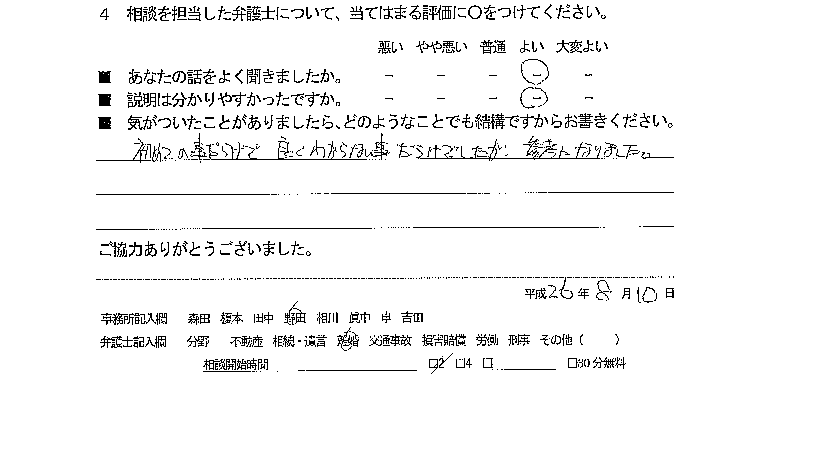 4 相談を担当した弁護士について、当てはまる評価に〇をつけてください。
悪い やや悪い 普通 よい 大変よい
■ あなたの話をよく聞きましたか。 - - - - -
■ 説明は分かりやすかったですか。 - - - - -
■ 気がついたことがありましたら、どのようなことでも結構ですからお書きください。
初めての事だらけで 良くわからない事だらけでしたが、参考になりました。
ご協力ありがとうございました。
平成26年8月10日
事務所記入欄 森田 榎本 田中 野田 相川 眞中 卓 吉田
弁護士記入欄 分野 不動産 相続・遺言 離婚 交通事故 損害賠償 労働 刑事 その他( )
相談開始時間 □2 □4 □ □30分無料